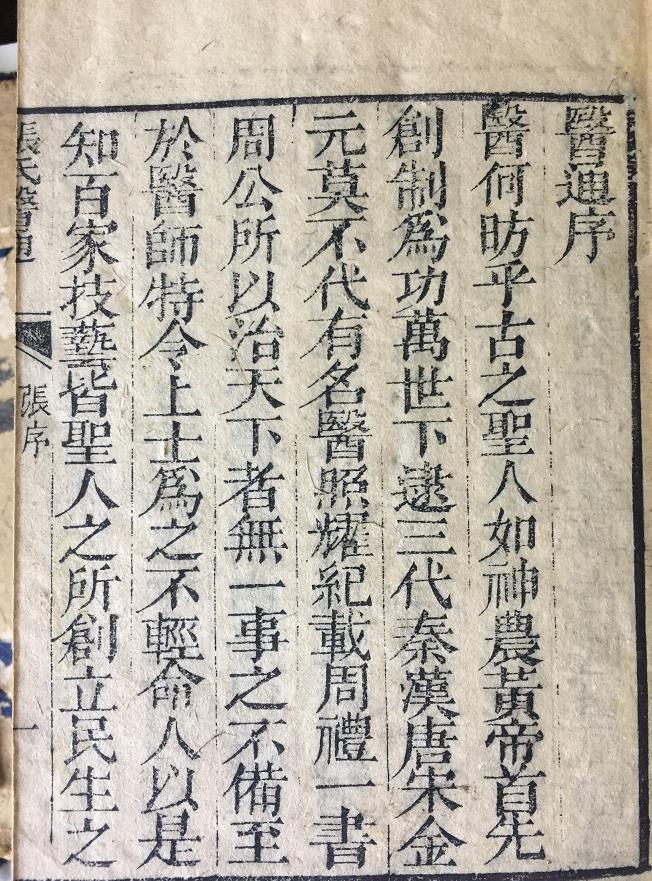 醫通序
醫何昉乎古之聖人如神農黃帝首先
創制爲功萬世下逮三代秦漢唐宋金
元莫不代有名醫照耀紀載周禮一書
周公所以治天下者無一事之不備至
於醫師特令上士爲之不輕命人以是
知百家技藝皆聖人之所創立民生之
張氏醫通
張序
一